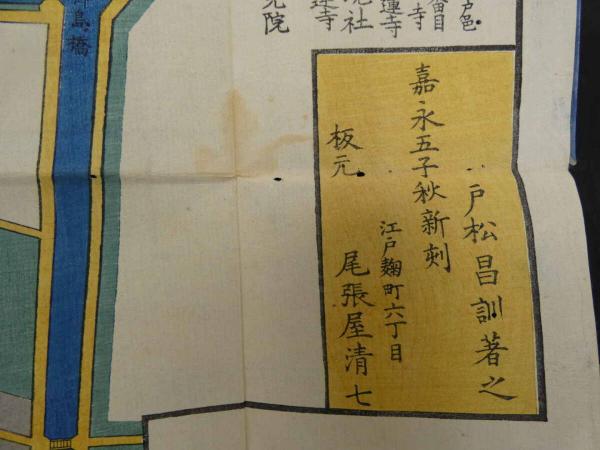 戸松昌訓著之
嘉永五子秋新刻
江戸麹町六丁目
板元 尾張屋清七
戸邑
寺
蓮寺
社
蓮寺
院
島橋